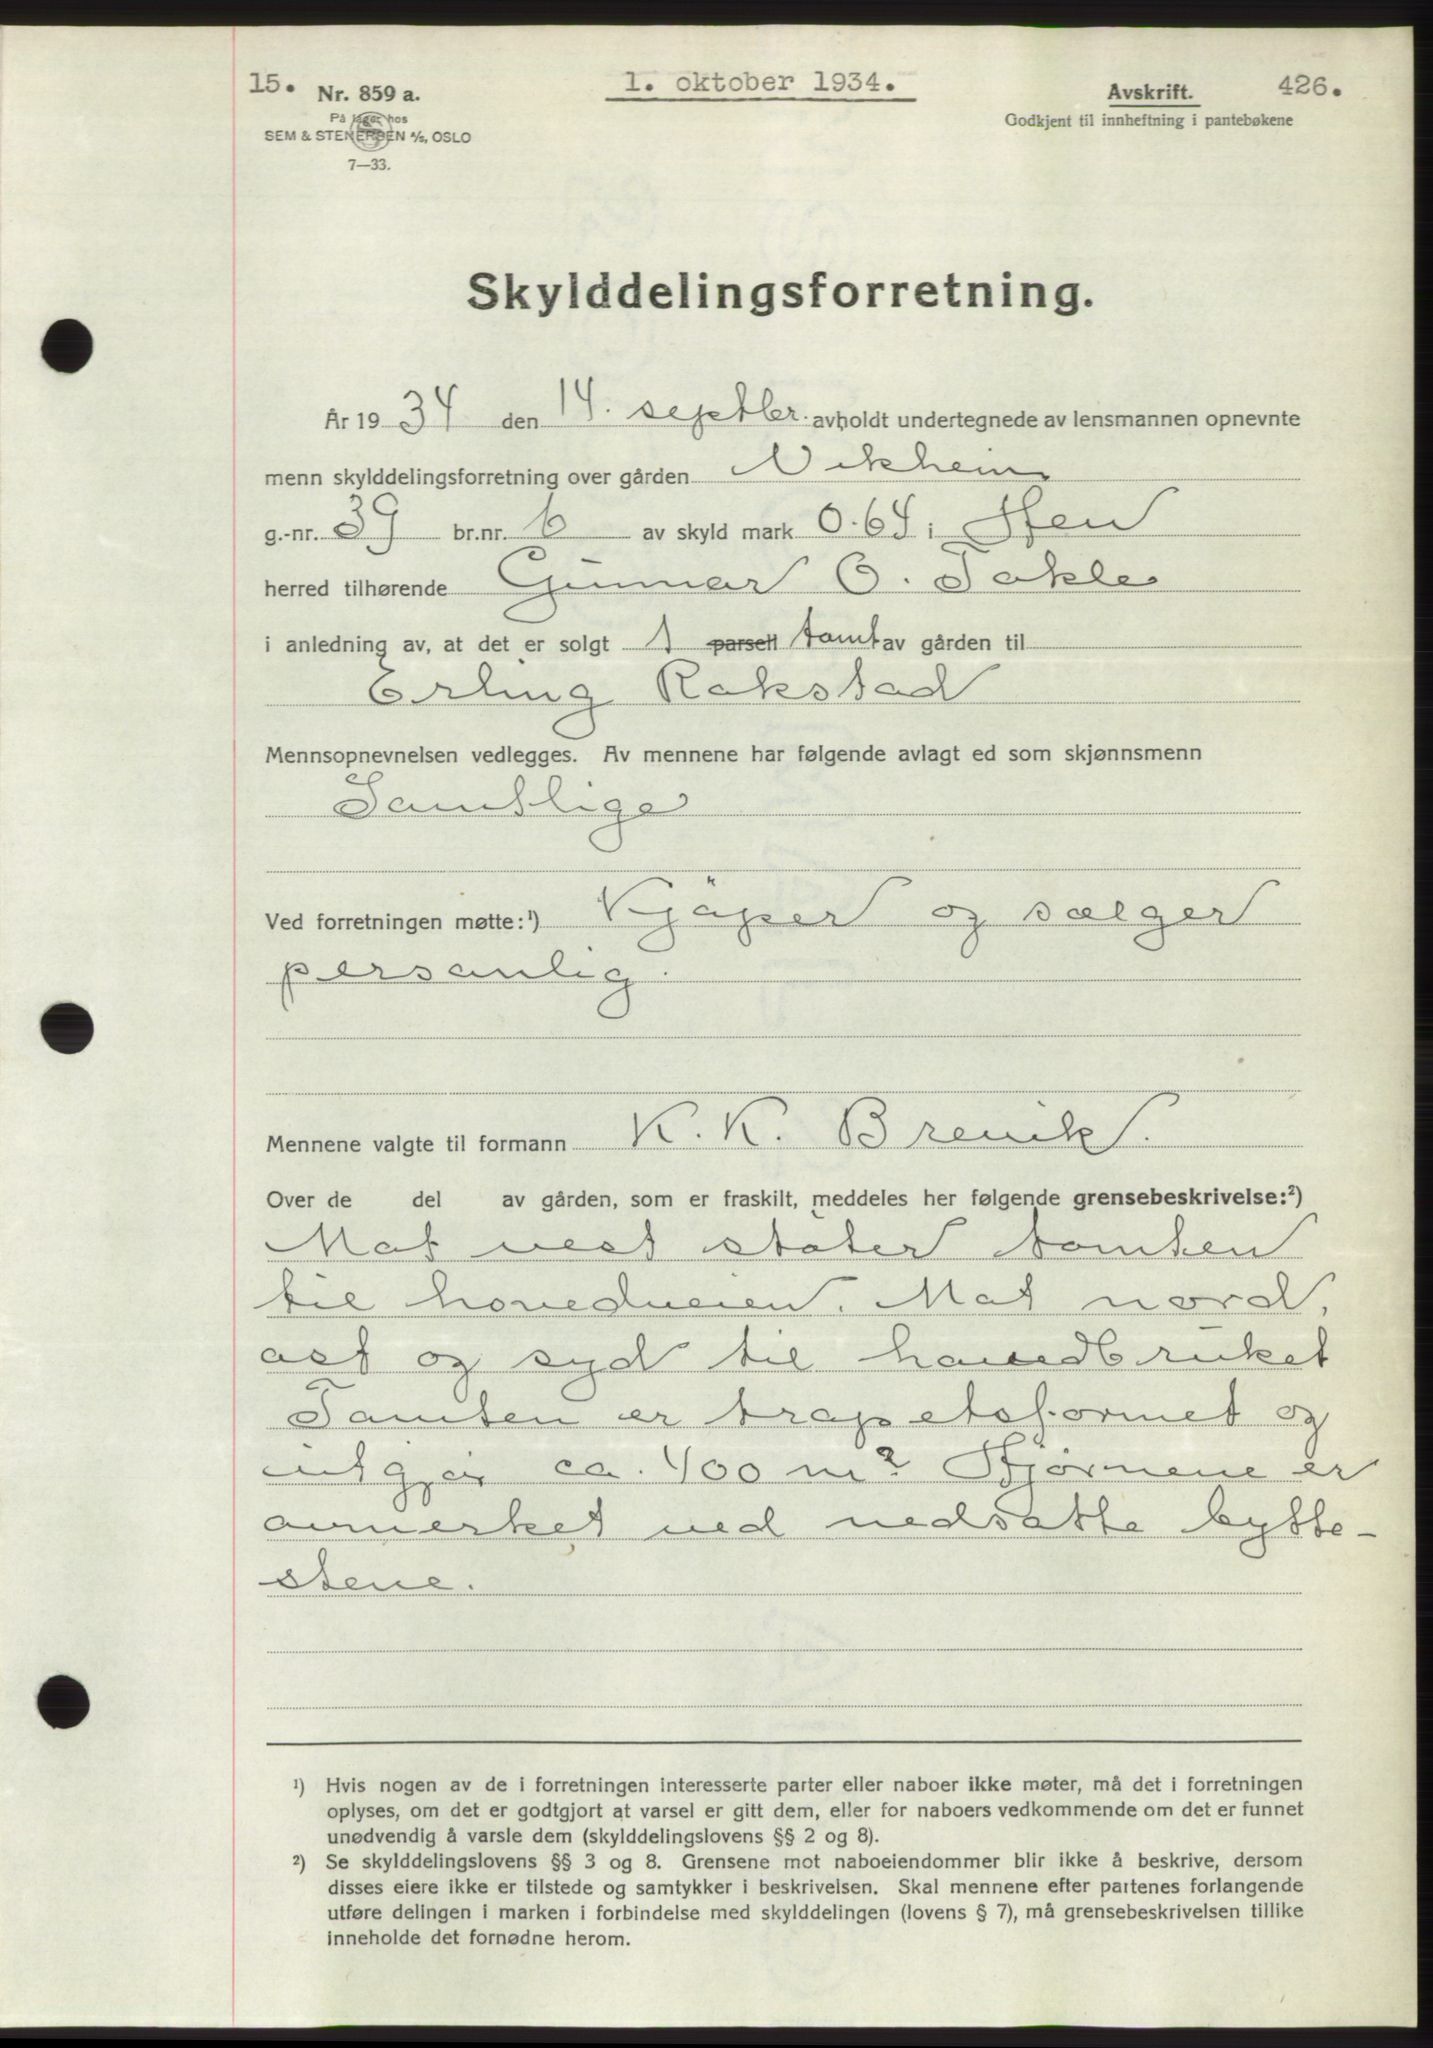 15. 1. oktober 1934. 426.
Nr. 859 a. Avskrift.
På lager hos Godkjent til innheftning i pantebøkene
SEM & STENERSEN A/S, OSLO
7—33.
Skylddelingsforretning.
År 1934 den 14. septbr. avholdt undertegnede av lensmannen opnevnte
menn skylddelingsforretning over gården Vikheim
g.-nr. 39 br.nr. 6 av skyld mark 0.64 i Hen
herred tilhørende Gunnar O. Takle
i anledning av, at det er solgt 1 parsell tomt av gården til
Erling Rakstad
Mennsopnevnelsen vedlegges. Av mennene har følgende avlagt ed som skjønnsmenn
Samtlige
Ved forretningen møtte:¹) Kjøper og sælger
personlig.
Mennene valgte til formann K. K. Brevik.
Over de del av gården, som er fraskilt, meddeles her følgende grensebeskrivelse:²)
Mot vest støter tomten
til hovedveien. Mot nord,
øst og syd til hovedbruket
Tomten er trapetsformet og
utgjør ca. 400 m² Hjørnene er
avmerket ved nedsatte bytte-
stene.
¹) Hvis nogen av de i forretningen interesserte parter eller naboer ikke møter, må det i forretningen
oplyses, om det er godtgjort at varsel er gitt dem, eller for naboers vedkommende om det er funnet
unødvendig å varsle dem (skylddelingslovens §§ 2 og 8).
²) Se skylddelingslovens §§ 3 og 8. Grensene mot naboeiendommer blir ikke å beskrive, dersom
disses eiere ikke er tilstede og samtykker i beskrivelsen. Skal mennene efter partenes forlangende
utføre delingen i marken i forbindelse med skylddelingen (lovens § 7), må grensebeskrivelsen tillike
inneholde det fornødne herom.